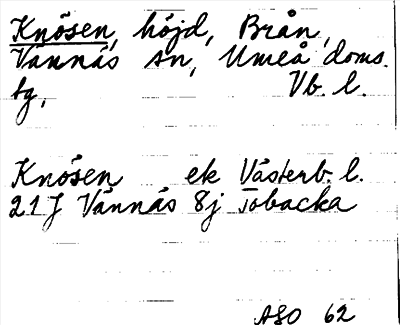 Knösen, höjd, Brån,
Vännäs sn, Umeå doms.
tg, Vb. l.
Knösen ek Västerb. l.
21J Vännäs 8j Tobacka
ASO 62